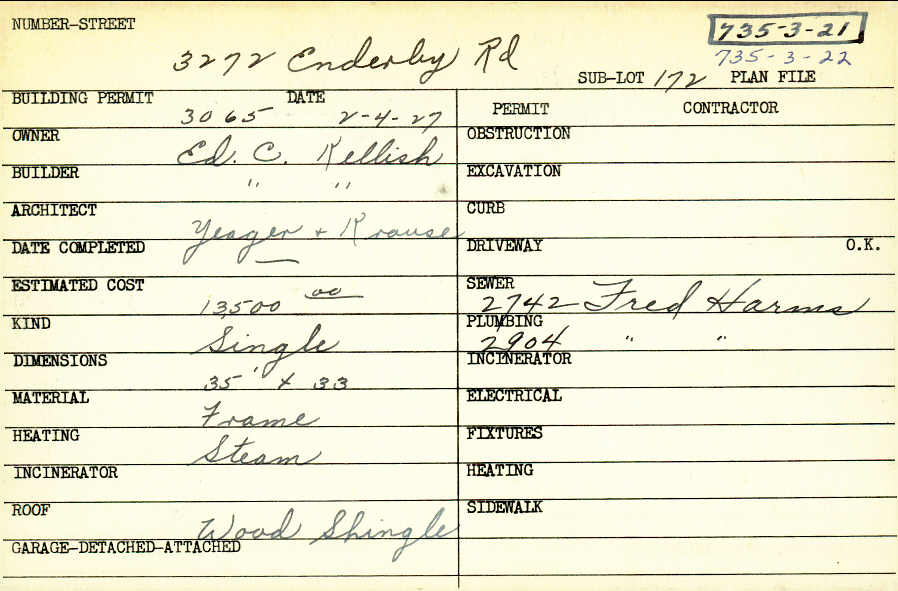 NUMBER-STREET
3272 Enderby Rd
735-3-21
735-3-22
SUB-LOT 172 PLAN FILE
BUILDING PERMIT 3065 DATE 2-4-27
OWNER Ed. C. Kellish
BUILDER " "
ARCHITECT Yeager + Krause
DATE COMPLETED —
ESTIMATED COST 13,500 00
KIND Single
DIMENSIONS 35' x 33
MATERIAL Frame
HEATING Steam
INCINERATOR
ROOF Wood Shingle
GARAGE-DETACHED-ATTACHED
PERMIT CONTRACTOR
OBSTRUCTION
EXCAVATION
CURB
DRIVEWAY O.K.
SEWER 2742 Fred Harms
PLUMBING 2904 " "
INCINERATOR
ELECTRICAL
FIXTURES
HEATING
SIDEWALK